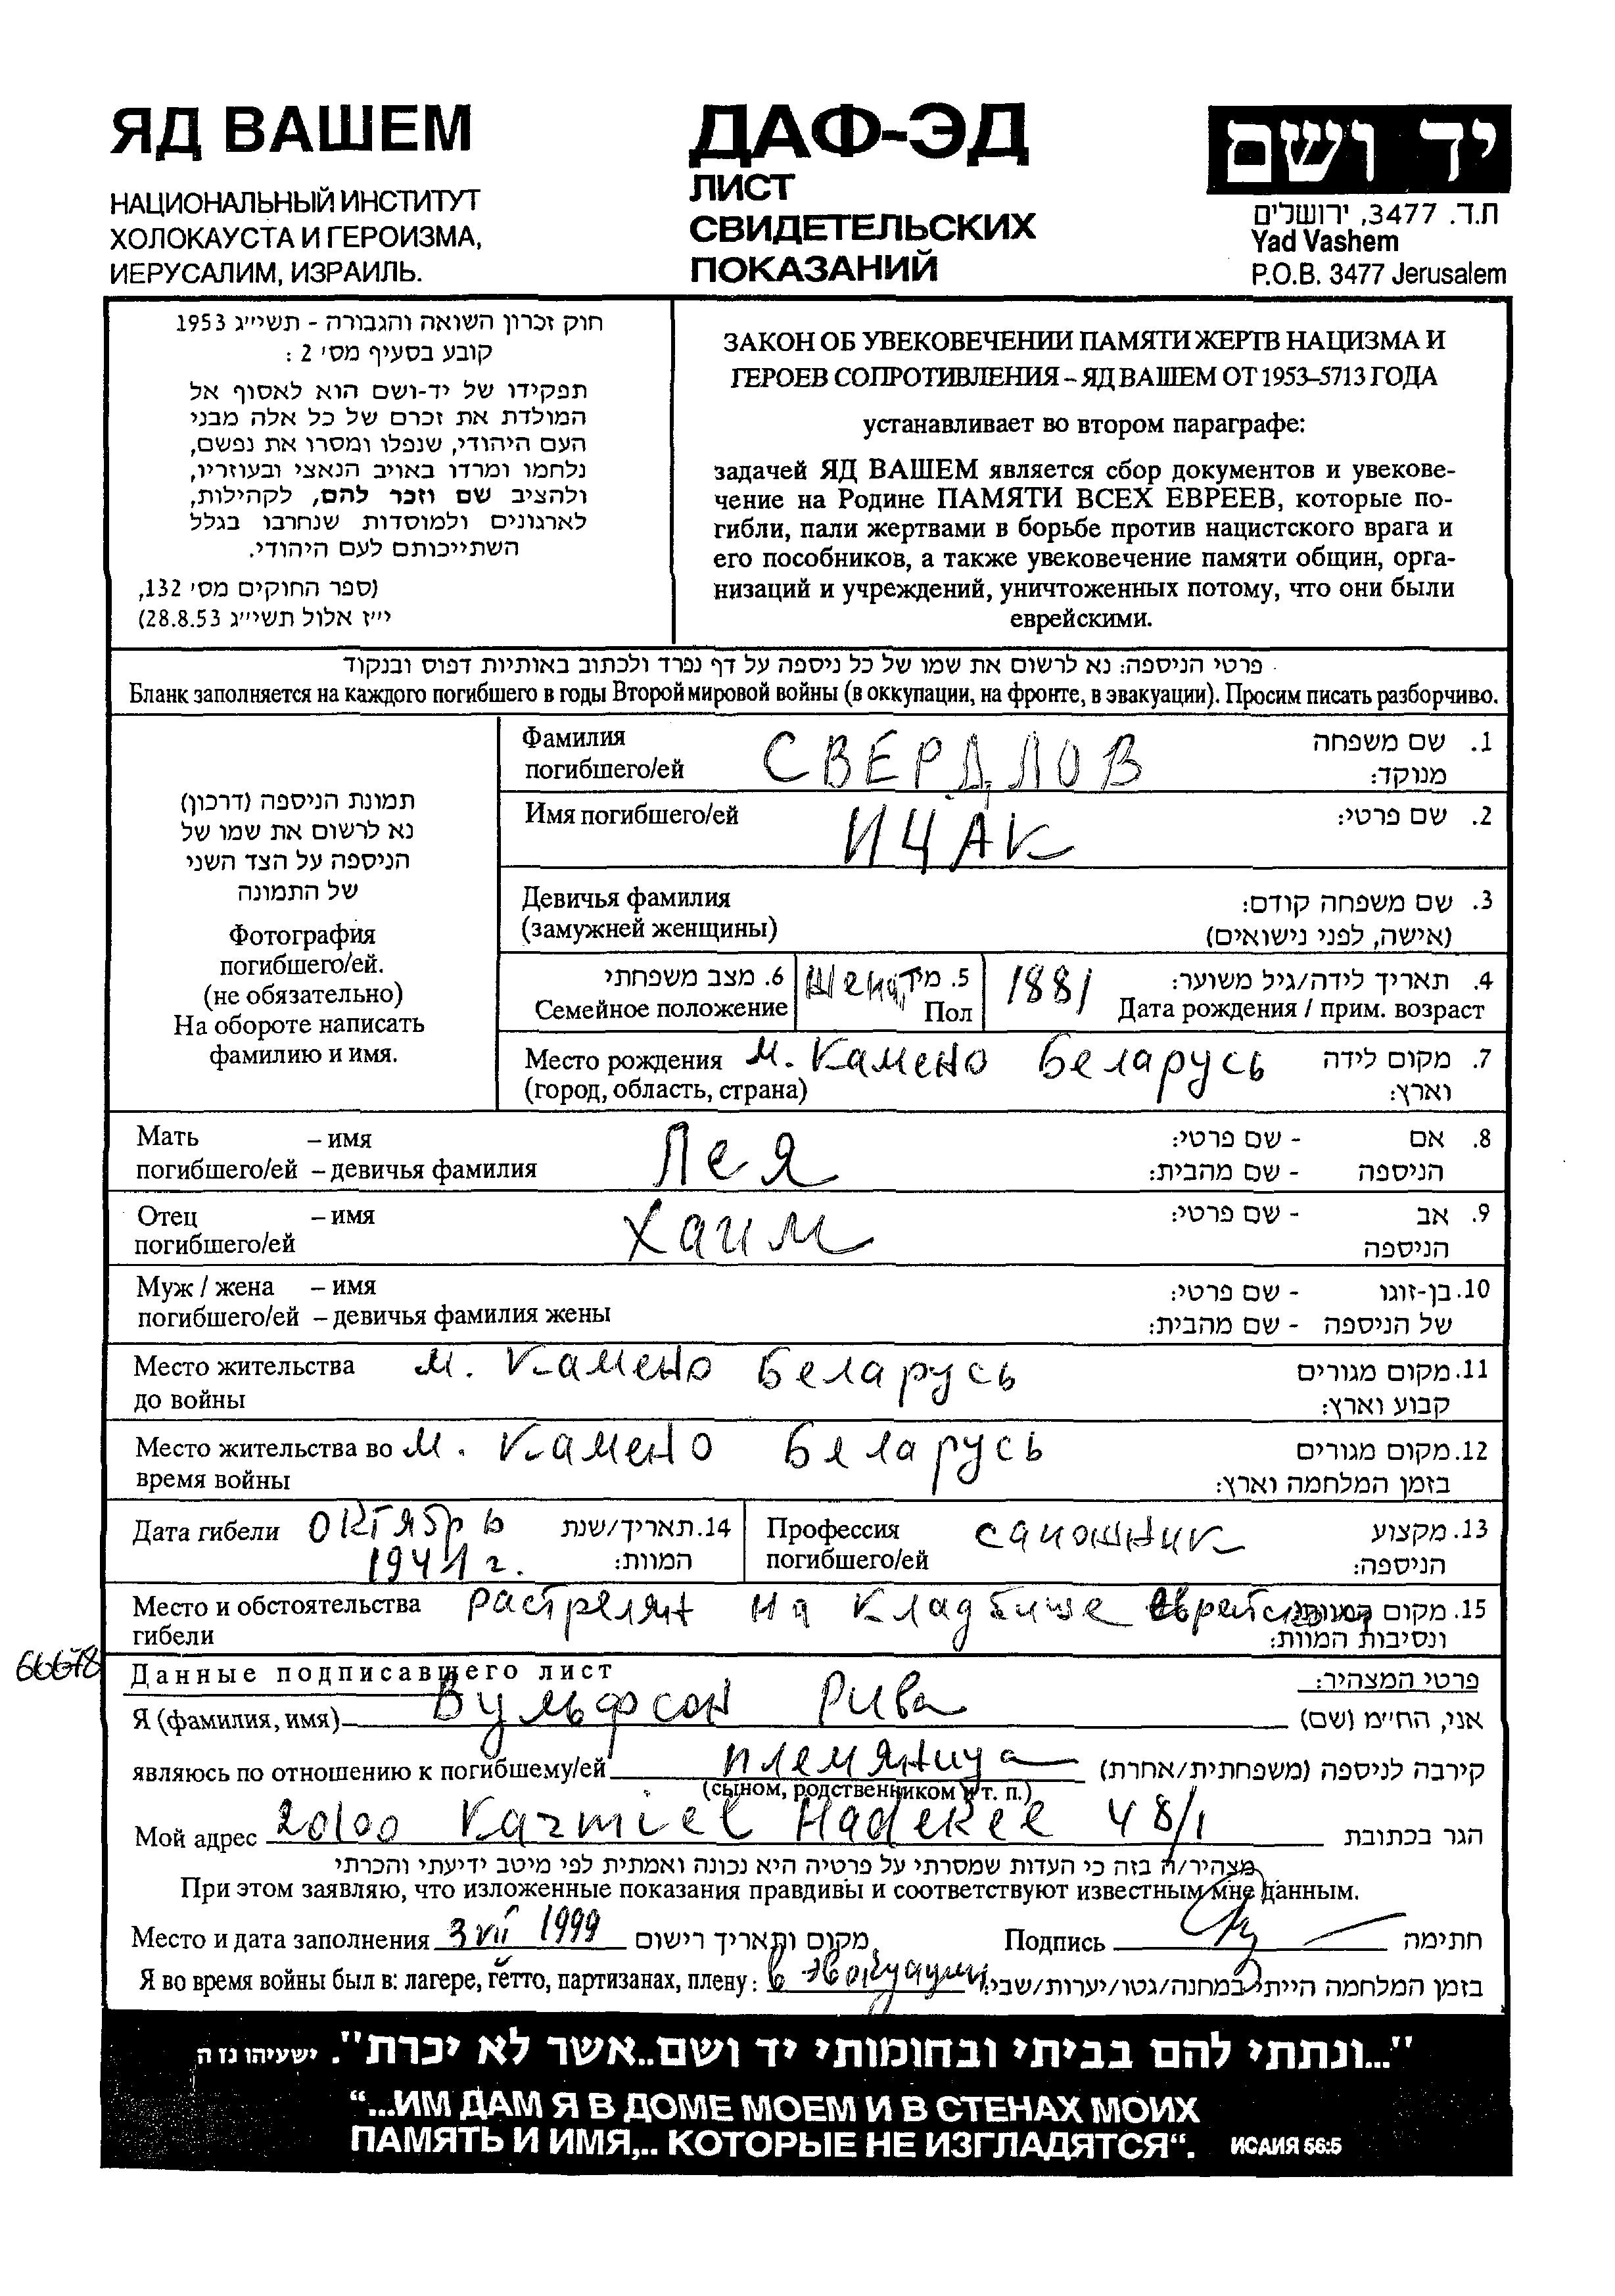 ЯД ВАШЕМ
НАЦИОНАЛЬНЫЙ ИНСТИТУТ
ХОЛОКАУСТА И ГЕРОИЗМА,
ИЕРУСАЛИМ, ИЗРАИЛЬ.
ДАФ-ЭД
ЛИСТ
СВИДЕТЕЛЬСКИХ
ПОКАЗАНИЙ
יד ושם
ת.ד. 3477, ירושלים
Yad Vashem
P.O.B. 3477 Jerusalem
חוק זכרון השואה והגבורה - תשי״ג 1953
קובע בסעיף מס׳ 2 :
תפקידו של יד-ושם הוא לאסוף אל
המולדת את זכרם של כל אלה מבני
העם היהודי, שנפלו ומסרו את נפשם,
נלחמו ומרדו באויב הנאצי ובעוזריו,
ולהציב שם וזכר להם, לקהילות,
לארגונים ולמוסדות שנחרבו בגלל
השתייכותם לעם היהודי.
(ספר החוקים מס׳ 132,
י״ז אלול תשי״ג 28.8.53)
ЗАКОН ОБ УВЕКОВЕЧЕНИИ ПАМЯТИ ЖЕРТВ НАЦИЗМА И
ГЕРОЕВ СОПРОТИВЛЕНИЯ – ЯД ВАШЕМ ОТ 1953–5713 ГОДА
устанавливает во втором параграфе:
задачей ЯД ВАШЕМ является сбор документов и увекове-
чение на Родине ПАМЯТИ ВСЕХ ЕВРЕЕВ, которые по-
гибли, пали жертвами в борьбе против нацистского врага и
его пособников, а также увековечение памяти общин, орга-
низаций и учреждений, уничтоженных потому, что они были
еврейскими.
פרטי הניספה: נא לרשום את שמו של כל ניספה על דף נפרד ולכתוב באותיות דפוס ובנקוד
Бланк заполняется на каждого погибшего в годы Второй мировой войны (в оккупации, на фронте, в эвакуации). Просим писать разборчиво.
תמונת הניספה (דרכון)
נא לרשום את שמו של
הניספה על הצד השני
של התמונה
Фотография
погибшего/ей.
(не обязательно)
На обороте написать
фамилию и имя.
Фамилия СВЕРДЛОВ 1. שם משפחה
погибшего/ей מנוקד:
Имя погибшего/ей ИЦАК 2. שם פרטי:
Девичья фамилия 3. שם משפחה קודם:
(замужней женщины) (אישה, לפני נישואים)
6. מצב משפחתי 5. מין 1881 4. תאריך לידה/גיל משוער:
Семейное положение Пол Дата рождения / прим. возраст
Место рождения м. Камено Беларусь 7. מקום לידה
(город, область, страна) וארץ:
Мать – имя Лея 8. אם - שם פרטי:
погибшего/ей – девичья фамилия הניספה - שם מהבית:
Отец – имя Хаим 9. אב - שם פרטי:
погибшего/ей הניספה
Муж / жена – имя 10. בן-זוגו - שם פרטי:
погибшего/ей – девичья фамилия жены של הניספה - שם מהבית:
Место жительства м. Камено Беларусь 11. מקום מגורים
до войны קבוע וארץ:
Место жительства во м. Камено Беларусь 12. מקום מגורים
время войны בזמן המלחמה וארץ:
Дата гибели октябрь 14. תאריך/שנת Профессия сапошник 13. מקצוע
1941 г. המוות: погибшего/ей הניספה:
Место и обстоятельства растрелян на кладбише 15. מקום המוות
гибели ונסיבות המוות:
66678
Данные подписавшего лист פרטי המצהיר:
Я (фамилия, имя) Вульфсон Рива אני, הח״מ (שם)
являюсь по отношению к погибшему/ей племяница קירבה לניספה (משפחתית/אחרת)
(сыном, родственником и т. п.)
Мой адрес 20100 Karmiel Hadekel 48/1 הגר בכתובת
מצהיר/ה בזה כי העדות שמסרתי על פרטיה היא נכונה ואמתית לפי מיטב ידיעתי והכרתי
При этом заявляю, что изложенные показания правдивы и соответствуют известным мне данным.
Место и дата заполнения 3 VII 1999 מקום ותאריך רישום Подпись חתימה
Я во время войны был в: лагере, гетто, партизанах, плену: в эвокуации בזמן המלחמה הייתי במחנה/גטו/יערות/שבי:
"...ונתתי להם בביתי ובחומותי יד ושם..אשר לא יכרת". ישעיהו נז ה
“...ИМ ДАМ Я В ДОМЕ МОЕМ И В СТЕНАХ МОИХ
ПАМЯТЬ И ИМЯ,.. КОТОРЫЕ НЕ ИЗГЛАДЯТСЯ“. ИСАИЯ 56:5